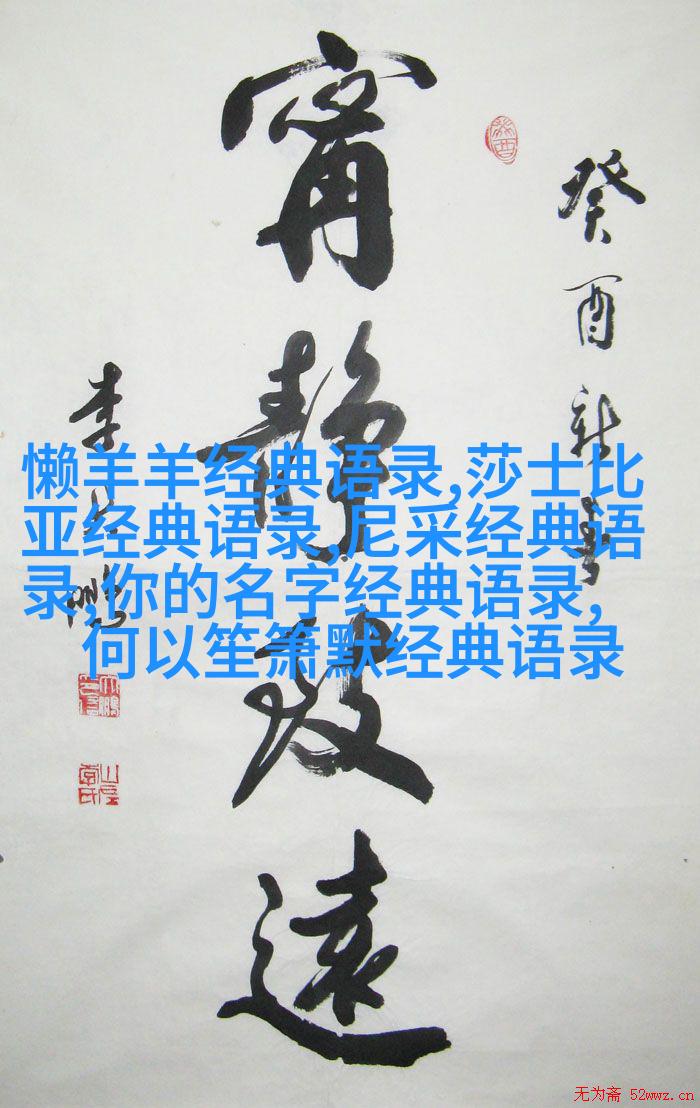 癸酉新春
甯静致远
李
鹏
懒羊羊经典语录,莎士比
亚经典语录,尼采经典语
录,你的名字经典语录,
何以笙箫默经典语录
无为斋 52wwz.cn